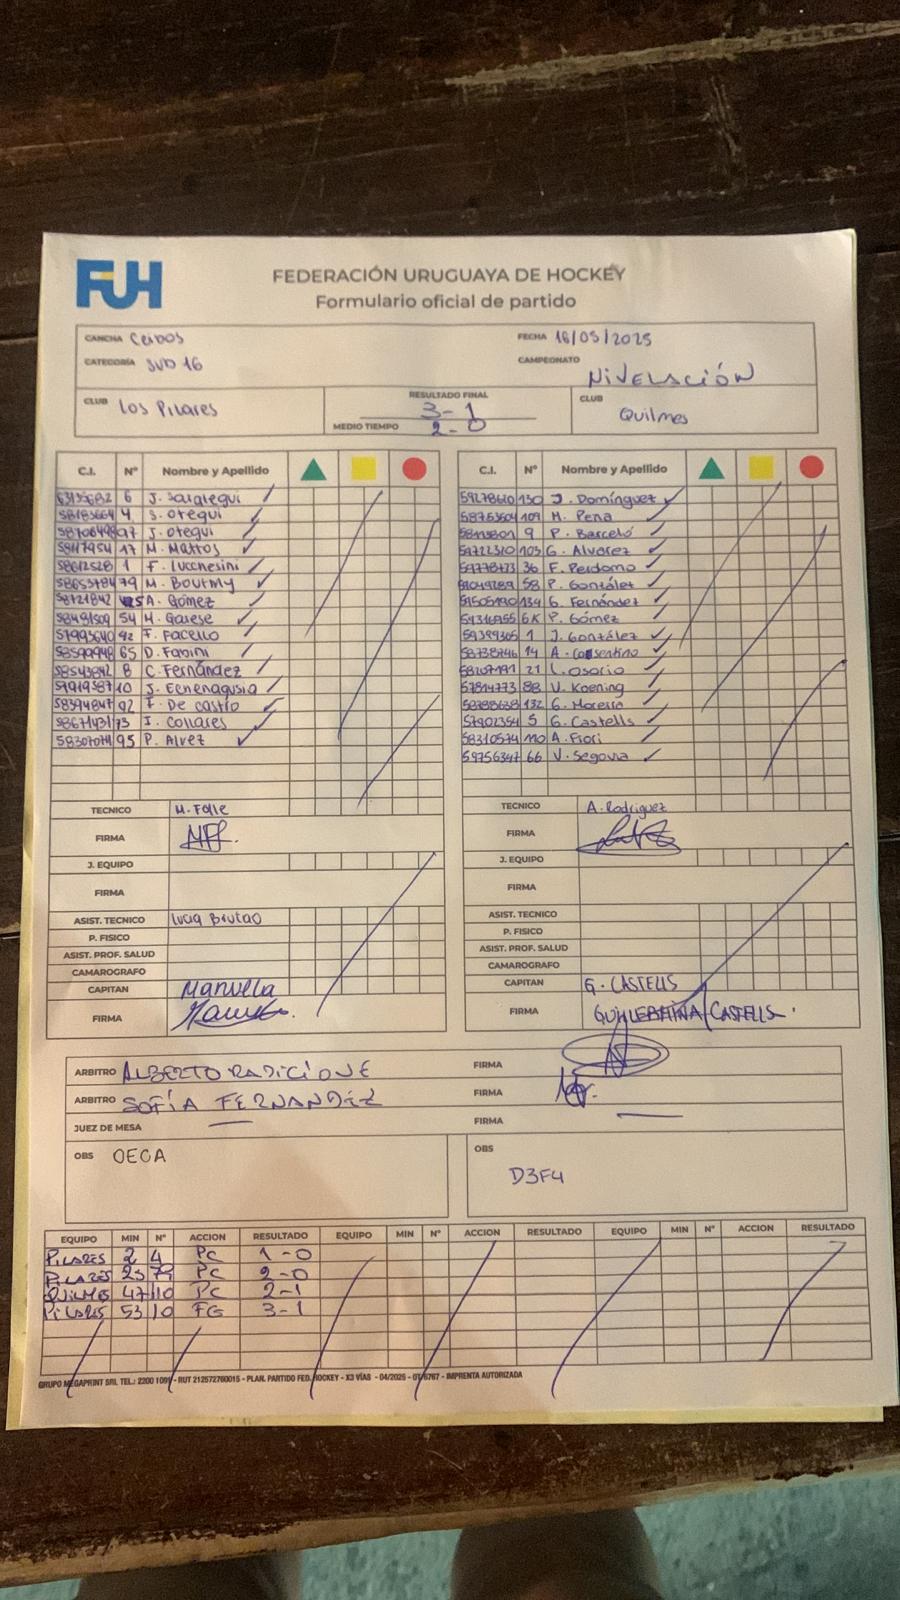 FUH
FEDERACIÓN URUGUAYA DE HOCKEY
Formulario oficial de partido
CANCHA Ceibos FECHA 16/05/2025
CATEGORÍA SUB 16 CAMPEONATO NIVELACIÓN
CLUB Los Pilares RESULTADO FINAL 3-1 CLUB Quilmes
MEDIO TIEMPO 2-0
C.I. Nº Nombre y Apellido C.I. Nº Nombre y Apellido
6 J. Saralegui 59278610 130 J. Domínguez
58183664 4 S. Otegui 58753604 109 M. Pena
97 J. Otegui 9 P. Barceló
58117954 17 M. Mattos 59722310 103 G. Alvarez
58612528 1 F. Lucchesini 59778173 36 F. Perdomo
79 M. Bourmy 58 P. González
58721842 A. Gómez 134 G. Fernández
58481509 54 M. Garese P. Gómez
57993640 92 F. Facello 59389365 1 J. González
58599948 65 D. Fabini 58738746 14 A. Cosentino
58543842 8 C. Fernández 21 L. Osorio
10 57814773 88 V. Koening
92 F. De Castro 58788638 132 G. Moreira
73 I. Collares 57902354 5 G. Castells
95 P. Alvez 58310574 110 A. Fiori
59756347 66 V. Segovia
TECNICO TECNICO A. Rodriguez
FIRMA FIRMA
J. EQUIPO J. EQUIPO
FIRMA FIRMA
ASIST. TECNICO Lucia ASIST. TECNICO
P. FISICO P. FISICO
ASIST. PROF. SALUD ASIST. PROF. SALUD
CAMAROGRAFO CAMAROGRAFO
CAPITAN Manuela CAPITAN G. CASTELLS
FIRMA FIRMA GUILLERMINA CASTELLS.
ARBITRO ALBERTO RADICIONE FIRMA
ARBITRO SOFÍA FERNANDEZ FIRMA
JUEZ DE MESA FIRMA
OBS OECA OBS D3F4
EQUIPO MIN Nº ACCION RESULTADO EQUIPO MIN Nº ACCION RESULTADO EQUIPO MIN Nº ACCION RESULTADO
PILARES 2 4 PC 1-0
PILARES 23 79 PC 2-0
QUILMES 47 110 PC 2-1
PILARES 53 10 FG 3-1
GRUPO MEGAPRINT SRL TEL.: 2200 1091 - RUT 212572760015 - PLAN. PARTIDO FED. HOCKEY - X3 VÍAS - 04/2025 - OT 6767 - IMPRENTA AUTORIZADA